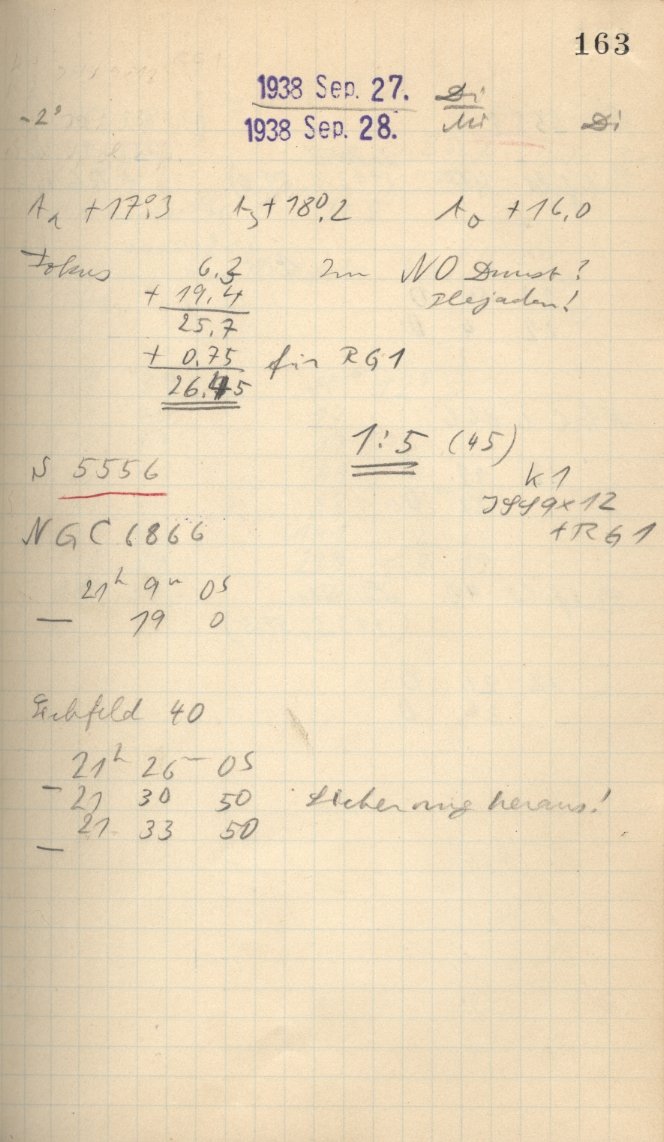 163
1938 Sep. 27. Di
-2°
1938 Sep. 28. Mi Di
+17°,3 +18°,2 +16,0
Fokus 6,3 Im NO Dunst?
+ 19,4 Plejaden!
25,7
+ 0,75 für RG1
26,45
1:5 (45)
S 5556
K1
x12
+RG1
NGC 6866
21h 9m 0s
— 19 0
Eichfeld 40
21h 26m 0s
— 21 30 50 Sicherung heraus!
21 33 50
—